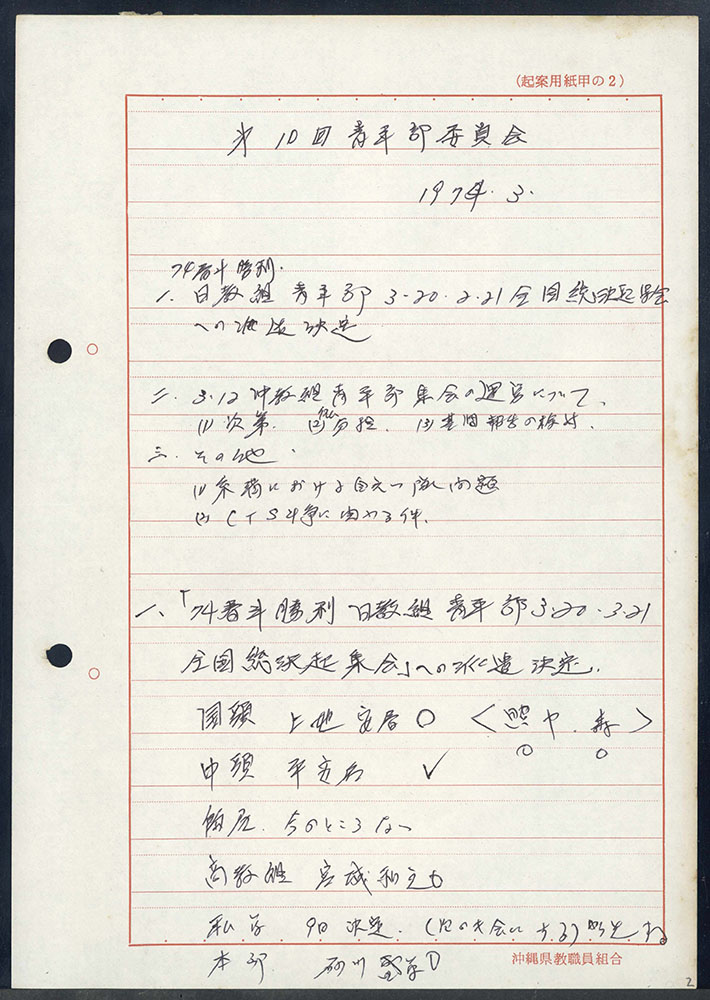 (起案用紙甲の2)
第10回青年部委員会
1974. 3.
74春斗勝利.
一. 日教組青年部 3-20.2.21全国総決起集会
への派遣決定
二. 3.12沖教組青年部集会の運営について、
(1)次第. (2)分担. (3)基調報告の検討.
三. その他.
(1) における 問題
(2) CTS斗争に関わる件.
一、「74春斗勝利 日教組青年部3-20.3.21
全国総決起集会」への派遣決定.
国頭 上地安 〇 〈 〉
〇 〇
中頭 平安名 ✓
那覇. 今のところなし
高教組 宮城
私学 9日決定.
本部 砂川
沖縄県教職員組合
2